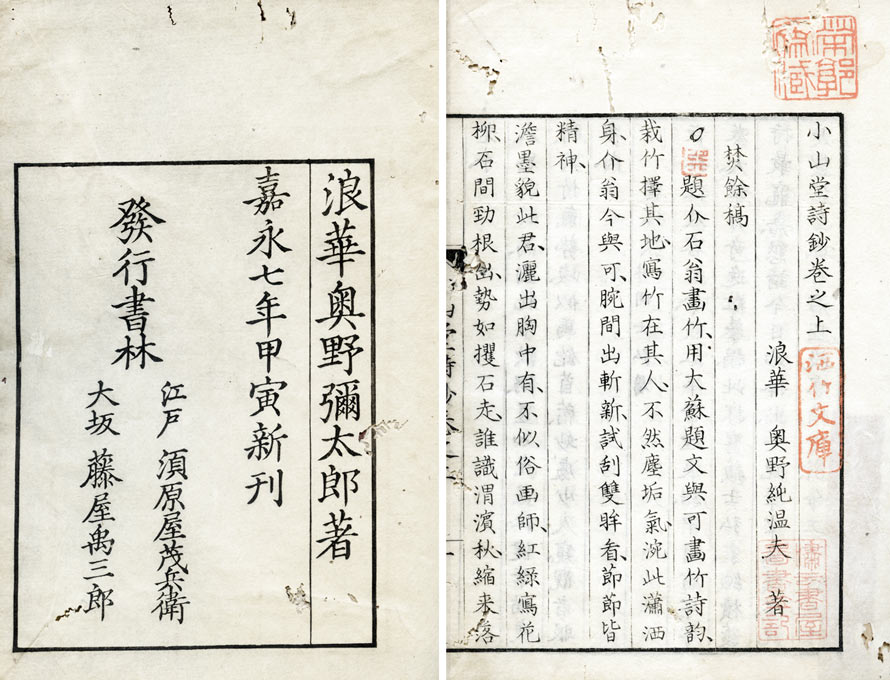 小山堂詩鈔巻之上
浪華 奥野純温夫 著
焚餘稿
○題介石翁畫竹用大蘇題文與可畫竹詩韵
栽竹擇其地寫竹在其人不然塵垢氣涴此瀟洒
身介翁今與可腕間出斬新試刮雙眸看節節皆
精神
澹墨貌此君灑出胸中有不似俗画師紅緑寫花
柳石間勁根出勢如攫石走誰識渭濱秋縮来落
洒竹文庫
浪華奥野彌太郎著
嘉永七年甲寅新刊
發行書林
江戸 須原屋茂兵衛
大坂 藤屋禹三郎